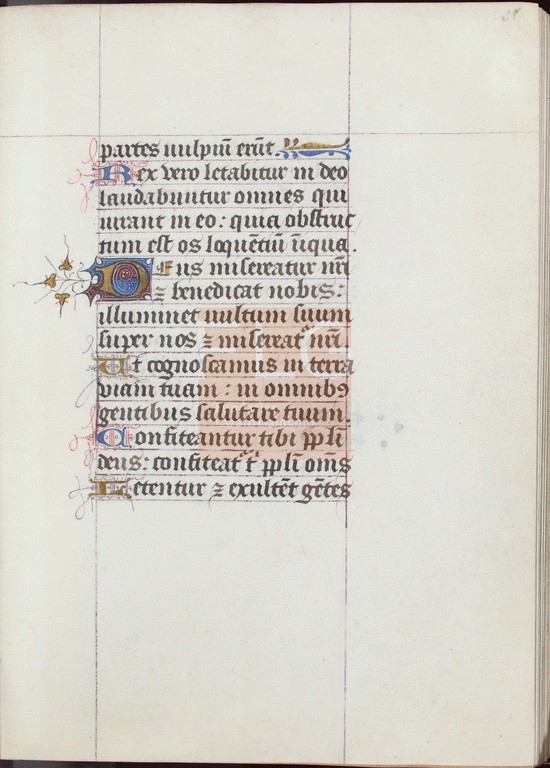 37
partes uulpiū erūt.
Rex vero letabitur in deo
laudabuntur omnes qui
iurant in eo: quia obstruc
tum est os loquētiū iiqua.
Deus misereatur nr̄i
⁊ benedicat nobis:
illuminet uultum suum
super nos ⁊ misereat᷑ nr̄i.
Ut cognoscamus in terra
viam tuam: in omnibꝯ
gentibus salutare tuum.
Confiteantur tibi ppl̄i
deus: confiteāt᷑ t̄ ppl̄i om̄s
Letentur ⁊ exultēt gētes